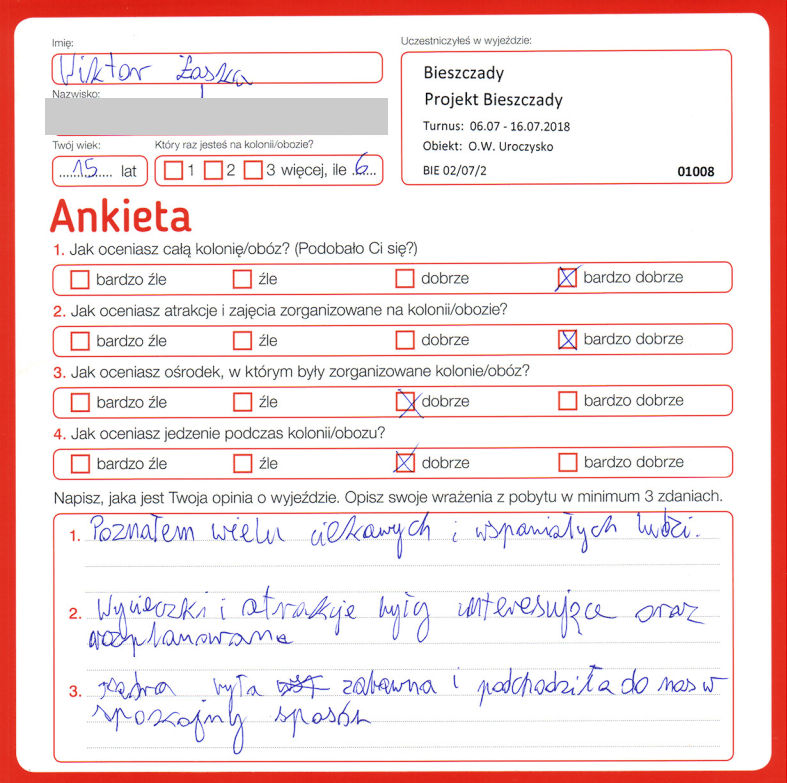 Imię:
Wiktor
Nazwisko:
Twój wiek:
15 lat
Który raz jesteś na kolonii/obozie?
1 2 3 więcej, ile 6
Uczestniczyłeś w wyjeździe:
Bieszczady
Projekt Bieszczady
Turnus: 06.07 - 16.07.2018
Obiekt: O.W. Uroczysko
BIE 02/07/2 01008
Ankieta
1. Jak oceniasz całą kolonię/obóz? (Podobało Ci się?)
bardzo źle źle dobrze bardzo dobrze
2. Jak oceniasz atrakcje i zajęcia zorganizowane na kolonii/obozie?
bardzo źle źle dobrze bardzo dobrze
3. Jak oceniasz ośrodek, w którym były zorganizowane kolonie/obóz?
bardzo źle źle dobrze bardzo dobrze
4. Jak oceniasz jedzenie podczas kolonii/obozu?
bardzo źle źle dobrze bardzo dobrze
Napisz, jaka jest Twoja opinia o wyjeździe. Opisz swoje wrażenia z pobytu w minimum 3 zdaniach.
1. Poznałem wielu ciekawych i wspaniałych ludzi.
2. Wycieczki i atrakcje były interesujące oraz
3. kadra była zabawna i podchodziła do nas w
spokojny sposób